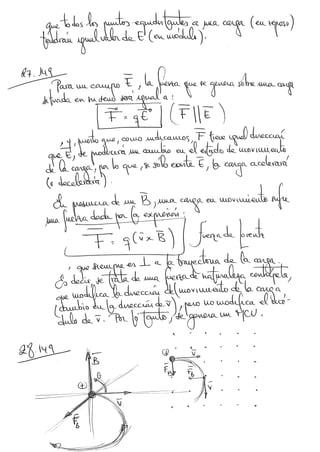 que todos los puntos equidistantes a una carga (en reposo)
tendrán igual valor de E (en módulo).
27.149
Para un campo E, la fuerza que se genera sobre una carga
situada en su seno será igual a:
F = qE (F || E)
, y, puesto que, como indicamos, F tiene igual dirección
que E, se producirá un cambio en el estado de movimiento
de la carga, por lo que, si solo existe E, la carga acelerará
(o decelerará).
En presencia de un B, una carga en movimiento sufre
una fuerza dada por la expresión:
F = q(v x B) fuerza de Lorentz
, que siempre es ⊥ a la trayectoria de la carga.
Es decir, se trata de una fuerza de naturaleza centrípeta,
que modifica la dirección del movimiento de la carga
(cambio en la dirección de v), pero no modifica el mó-
dulo de v. Por lo tanto, se genera un MCU.
28.149
B
θ
+
v
F_B
+
v
F_B
F_B
v